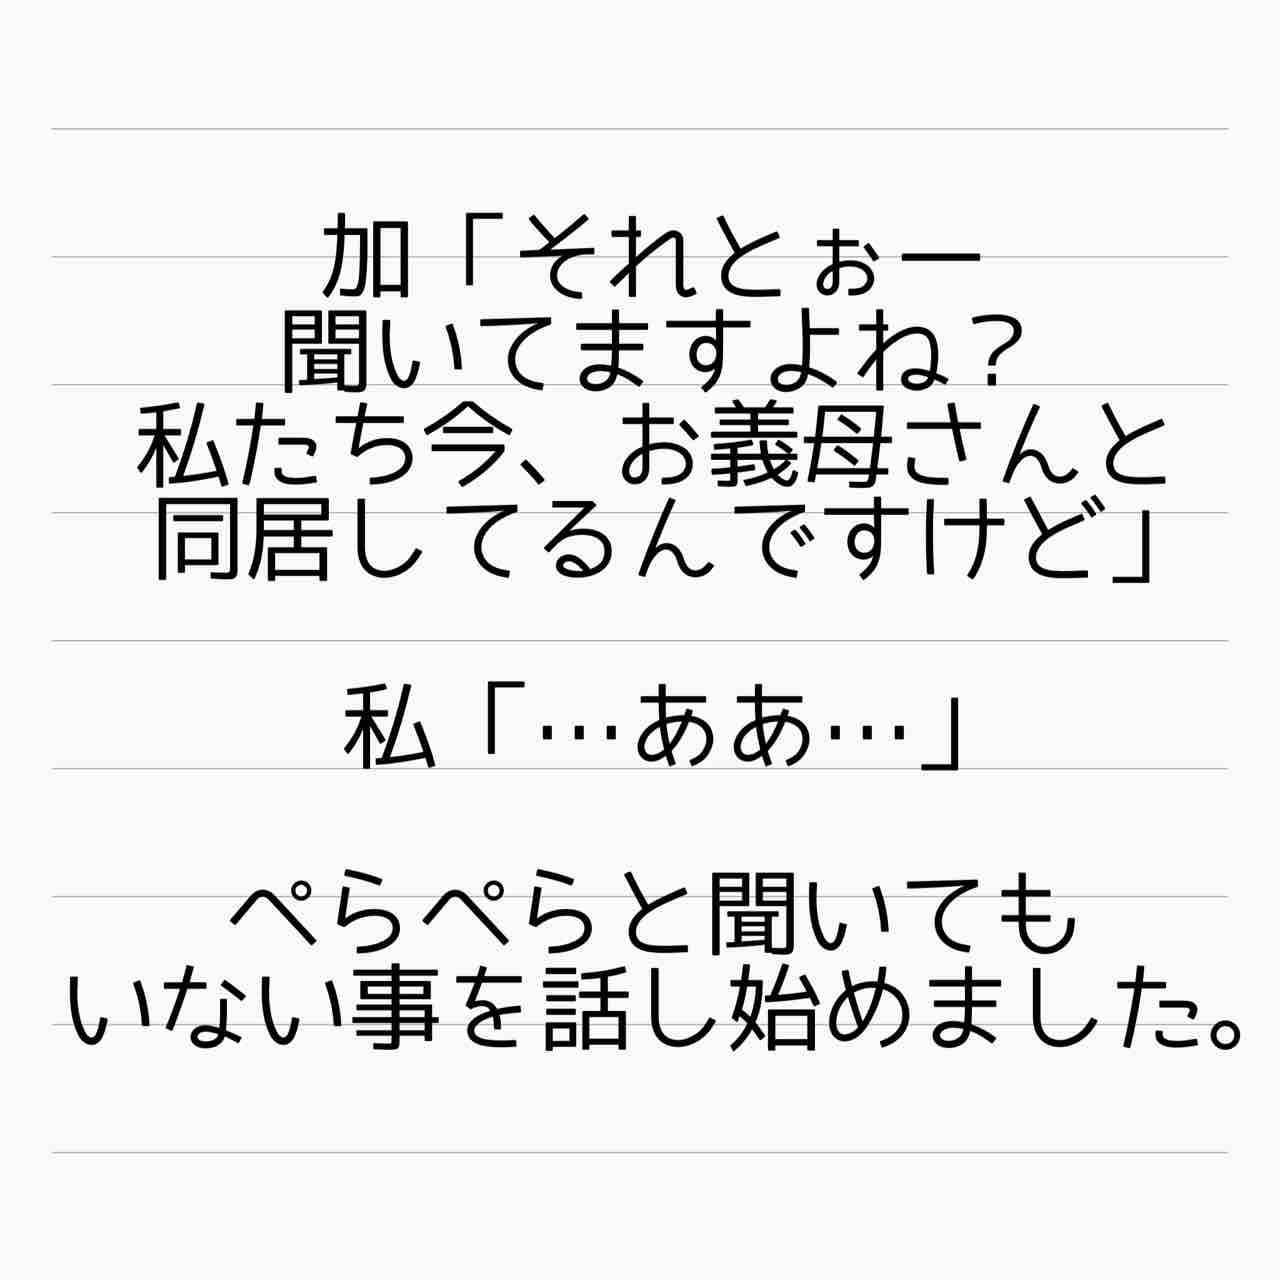 加「それとぉー
聞いてますよね？
私たち今、お義母さんと
同居してるんですけど」
私「…ああ…」
ぺらぺらと聞いても
いない事を話し始めました。